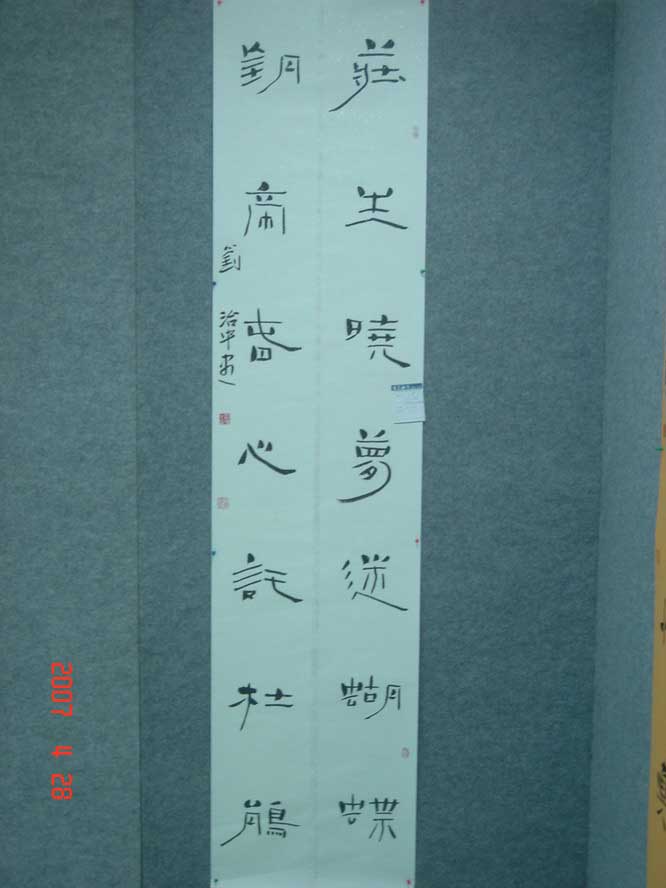 莊生曉夢迷蝴蝶
望帝春心託杜鵑
劉治平書
2007 4 28